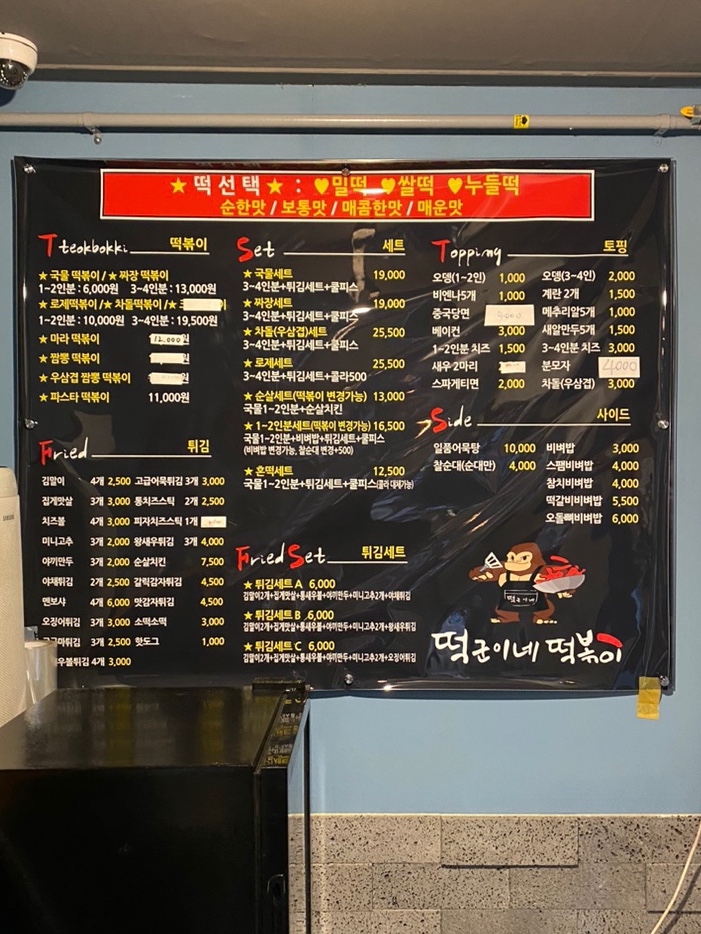 ★ 떡 선 택 ★ : ♥밀떡 ♥쌀떡 ♥누들떡
순한맛 / 보통맛 / 매콤한맛 / 매운맛
Tteokbokki 떡볶이
★ 국물 떡볶이 / ★ 짜장 떡볶이
1~2인분 : 6,000원 3~4인분 : 13,000원
★ 로제떡볶이 / ★ 차돌떡볶이 / ★
1~2인분 : 10,000원 3~4인분 : 19,500원
★ 마라 떡볶이 12,000원
★ 짬뽕 떡볶이
★ 우삼겹 짬뽕 떡볶이
★ 파스타 떡볶이 11,000원
Fried 튀김
김말이 4개 2,500 고급어묵튀김 3개 3,000
집게맛살 3개 3,000 통치즈스틱 2개 2,500
치즈볼 4개 3,000 피자치즈스틱 1개
미니고추 3개 2,000 왕새우튀김 3개 4,000
야끼만두 3개 2,000 순살치킨 7,500
야채튀김 2개 2,500 갈릭감자튀김 4,500
멘보샤 4개 6,000 맛감자튀김 4,500
오징어튀김 3개 3,000 소떡소떡 3,000
3개 2,500 핫도그 1,000
우볼튀김 4개 3,000
Set 세트
★ 국물세트 19,000
3~4인분+튀김세트+쿨피스
★ 짜장세트 19,000
3~4인분+튀김세트+쿨피스
★ 차돌(우삼겹)세트 25,500
3~4인분+튀김세트+쿨피스
★ 로제세트 25,500
3~4인분+튀김세트+콜라500
★ 순살세트(떡볶이 변경가능) 13,000
국물1~2인분+순살치킨
★ 1~2인분세트(떡볶이 변경가능) 16,500
국물1~2인분+비벼밥+튀김세트+쿨피스
(비벼밥 변경가능, 찰순대 변경+500)
★ 혼떡세트 12,500
국물1~2인분+튀김세트+쿨피스(콜라 대체가능)
Fried Set 튀김세트
★ 튀김세트 A 6,000
김말이2개+집게맛살+통새우볼+야끼만두+미니고추2개+야채튀김
★ 튀김세트 B 6,000
김말이2개+집게맛살+통새우볼+야끼만두+미니고추2개+왕새우튀김
★ 튀김세트 C 6,000
김말이2개+집게맛살+통새우볼+야끼만두+미니고추2개+오징어튀김
Topping 토핑
오뎅(1~2인) 1,000 오뎅(3~4인) 2,000
비엔나5개 1,000 계란 2개 1,500
중국당면 메추리알5개 1,000
베이컨 3,000 새알만두5개 1,500
1~2인분 치즈 1,500 3~4인분 치즈 3,000
새우 2마리 분모자 4000
스파게티면 2,000 차돌(우삼겹) 3,000
Side 사이드
일품어묵탕 10,000 비벼밥 3,000
찰순대(순대만) 4,000 스팸비벼밥 4,000
참치비벼밥 4,000
떡갈비비벼밥 5,500
오돌뼈비벼밥 6,000
떡군이네
떡군이네 떡볶이
SAMSUNG